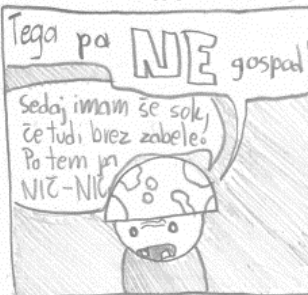 Tega pa NE gospod
Sedaj imam še sok,
če tudi brez zabele.
Potem pa
NIČ-NIČ